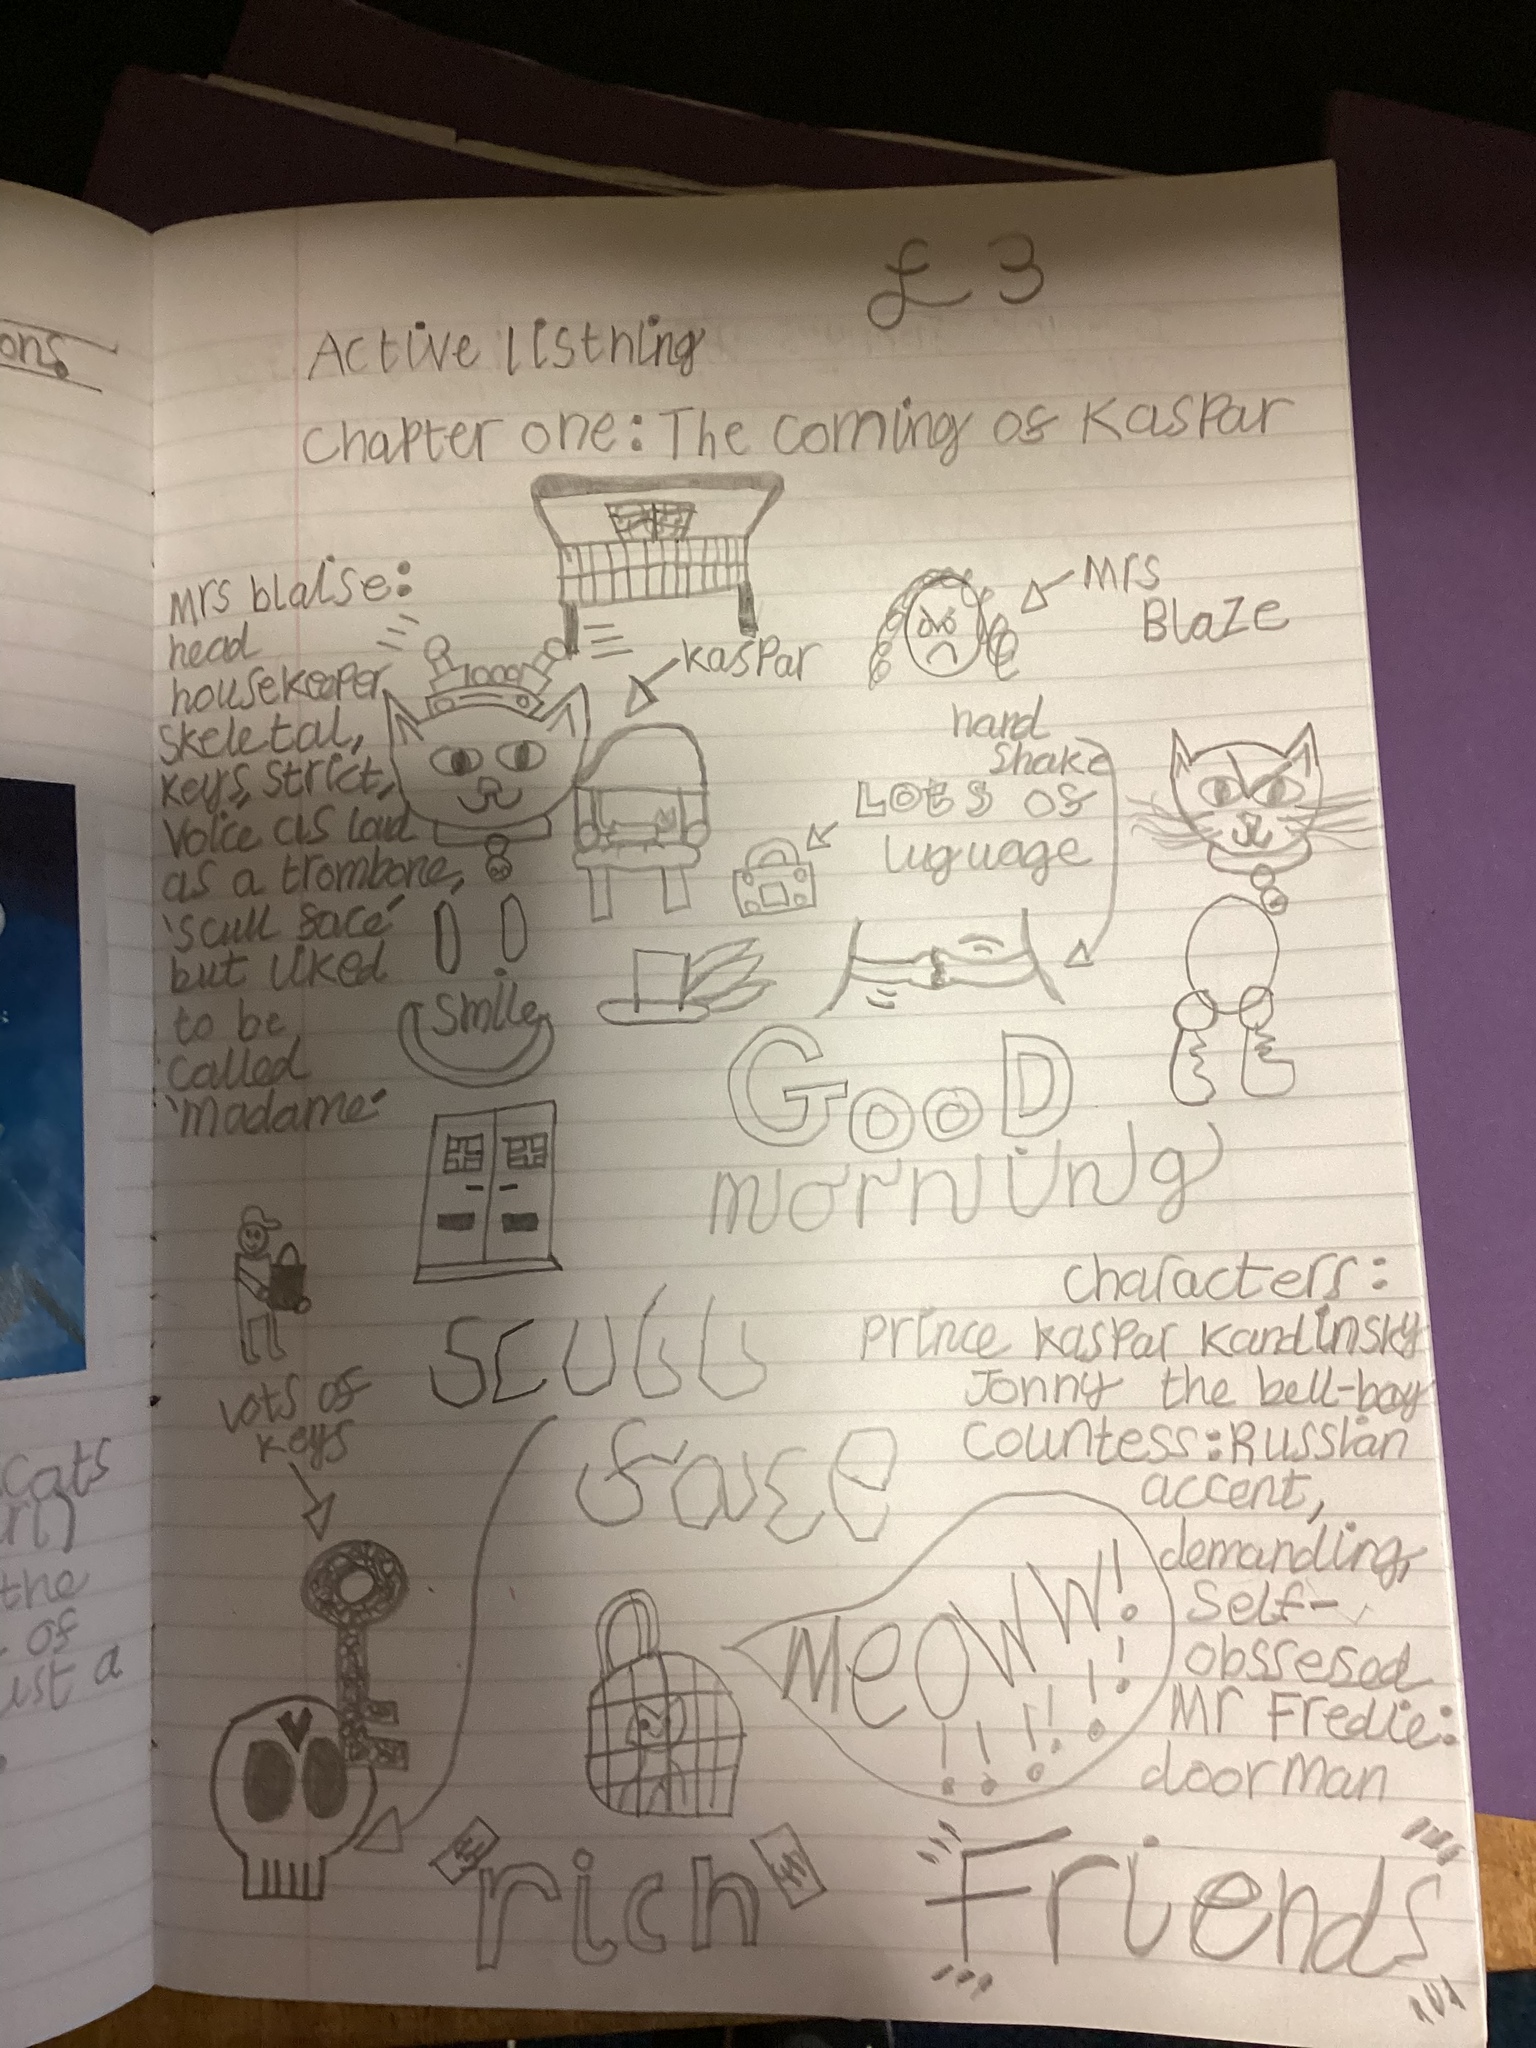 £3
Active listning
Chapter one: The coming of Kaspar
Mrs blaise:
head
housekeeper
skeletal,
keys, strict,
voice as loud
as a trombone,
'scull face'
but liked
to be
called
'madame'
Kaspar
Mrs
Blaze
hard
shake
Lots of
luguage
Smile
Good
morning
characters:
Prince Kaspar Kandinsky
Jonny the bell-boy
Countess: Russian
accent,
demanding,
self-
obssesed
Mr Fredie:
doorman
Lots of
keys
Scull
face
MEOWW!
! ! ! ! ! ! !
"rich"
Friends
ons
cats
the
of
ust a